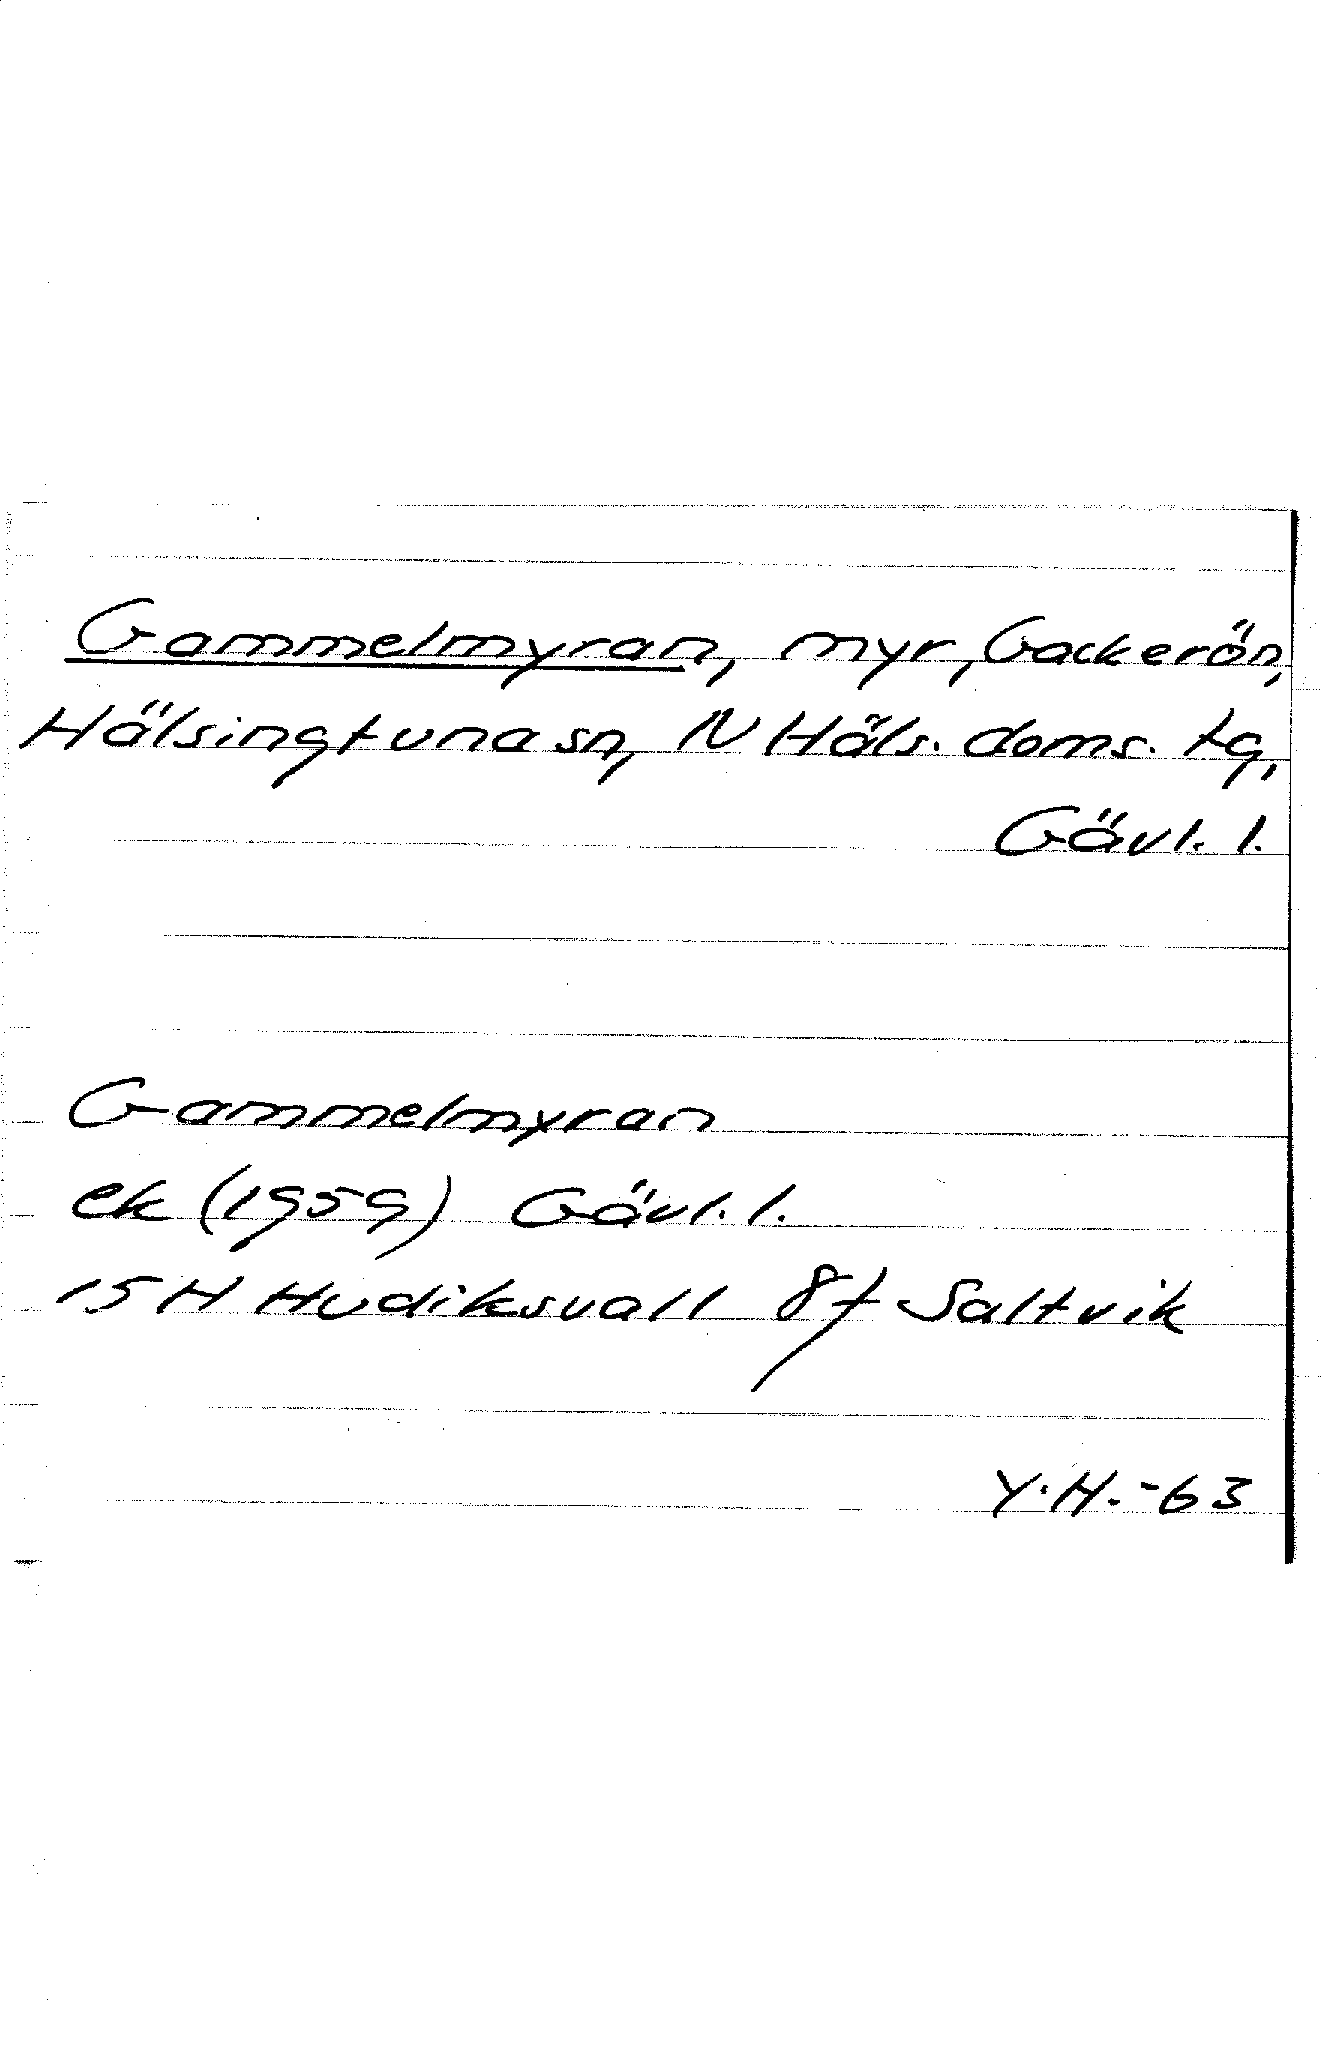 Gammelmyran, myr, Gackerön,
Hälsingtuna sn, N Häls. doms. tg,
Gävl. l.
Gammelmyran
ek (1959) Gävl. l.
15 H Hudiksvall 8f Saltvik
Y.H.-63